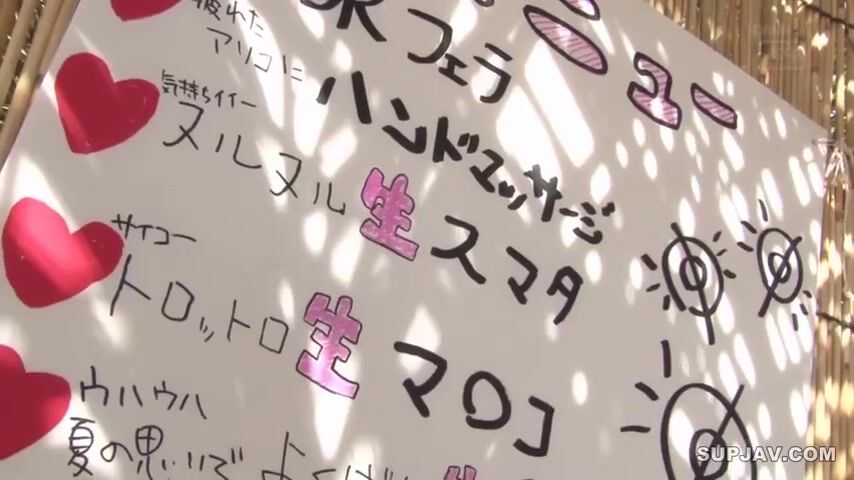 ニュー
疲れた
アソコに
フェラ
ハンドマッサージ
気持ちイイー
ヌルヌル生スマタ
サイコー
トロットロ生マロコ
ウハウハ
夏の思い
SUPJAV.COM